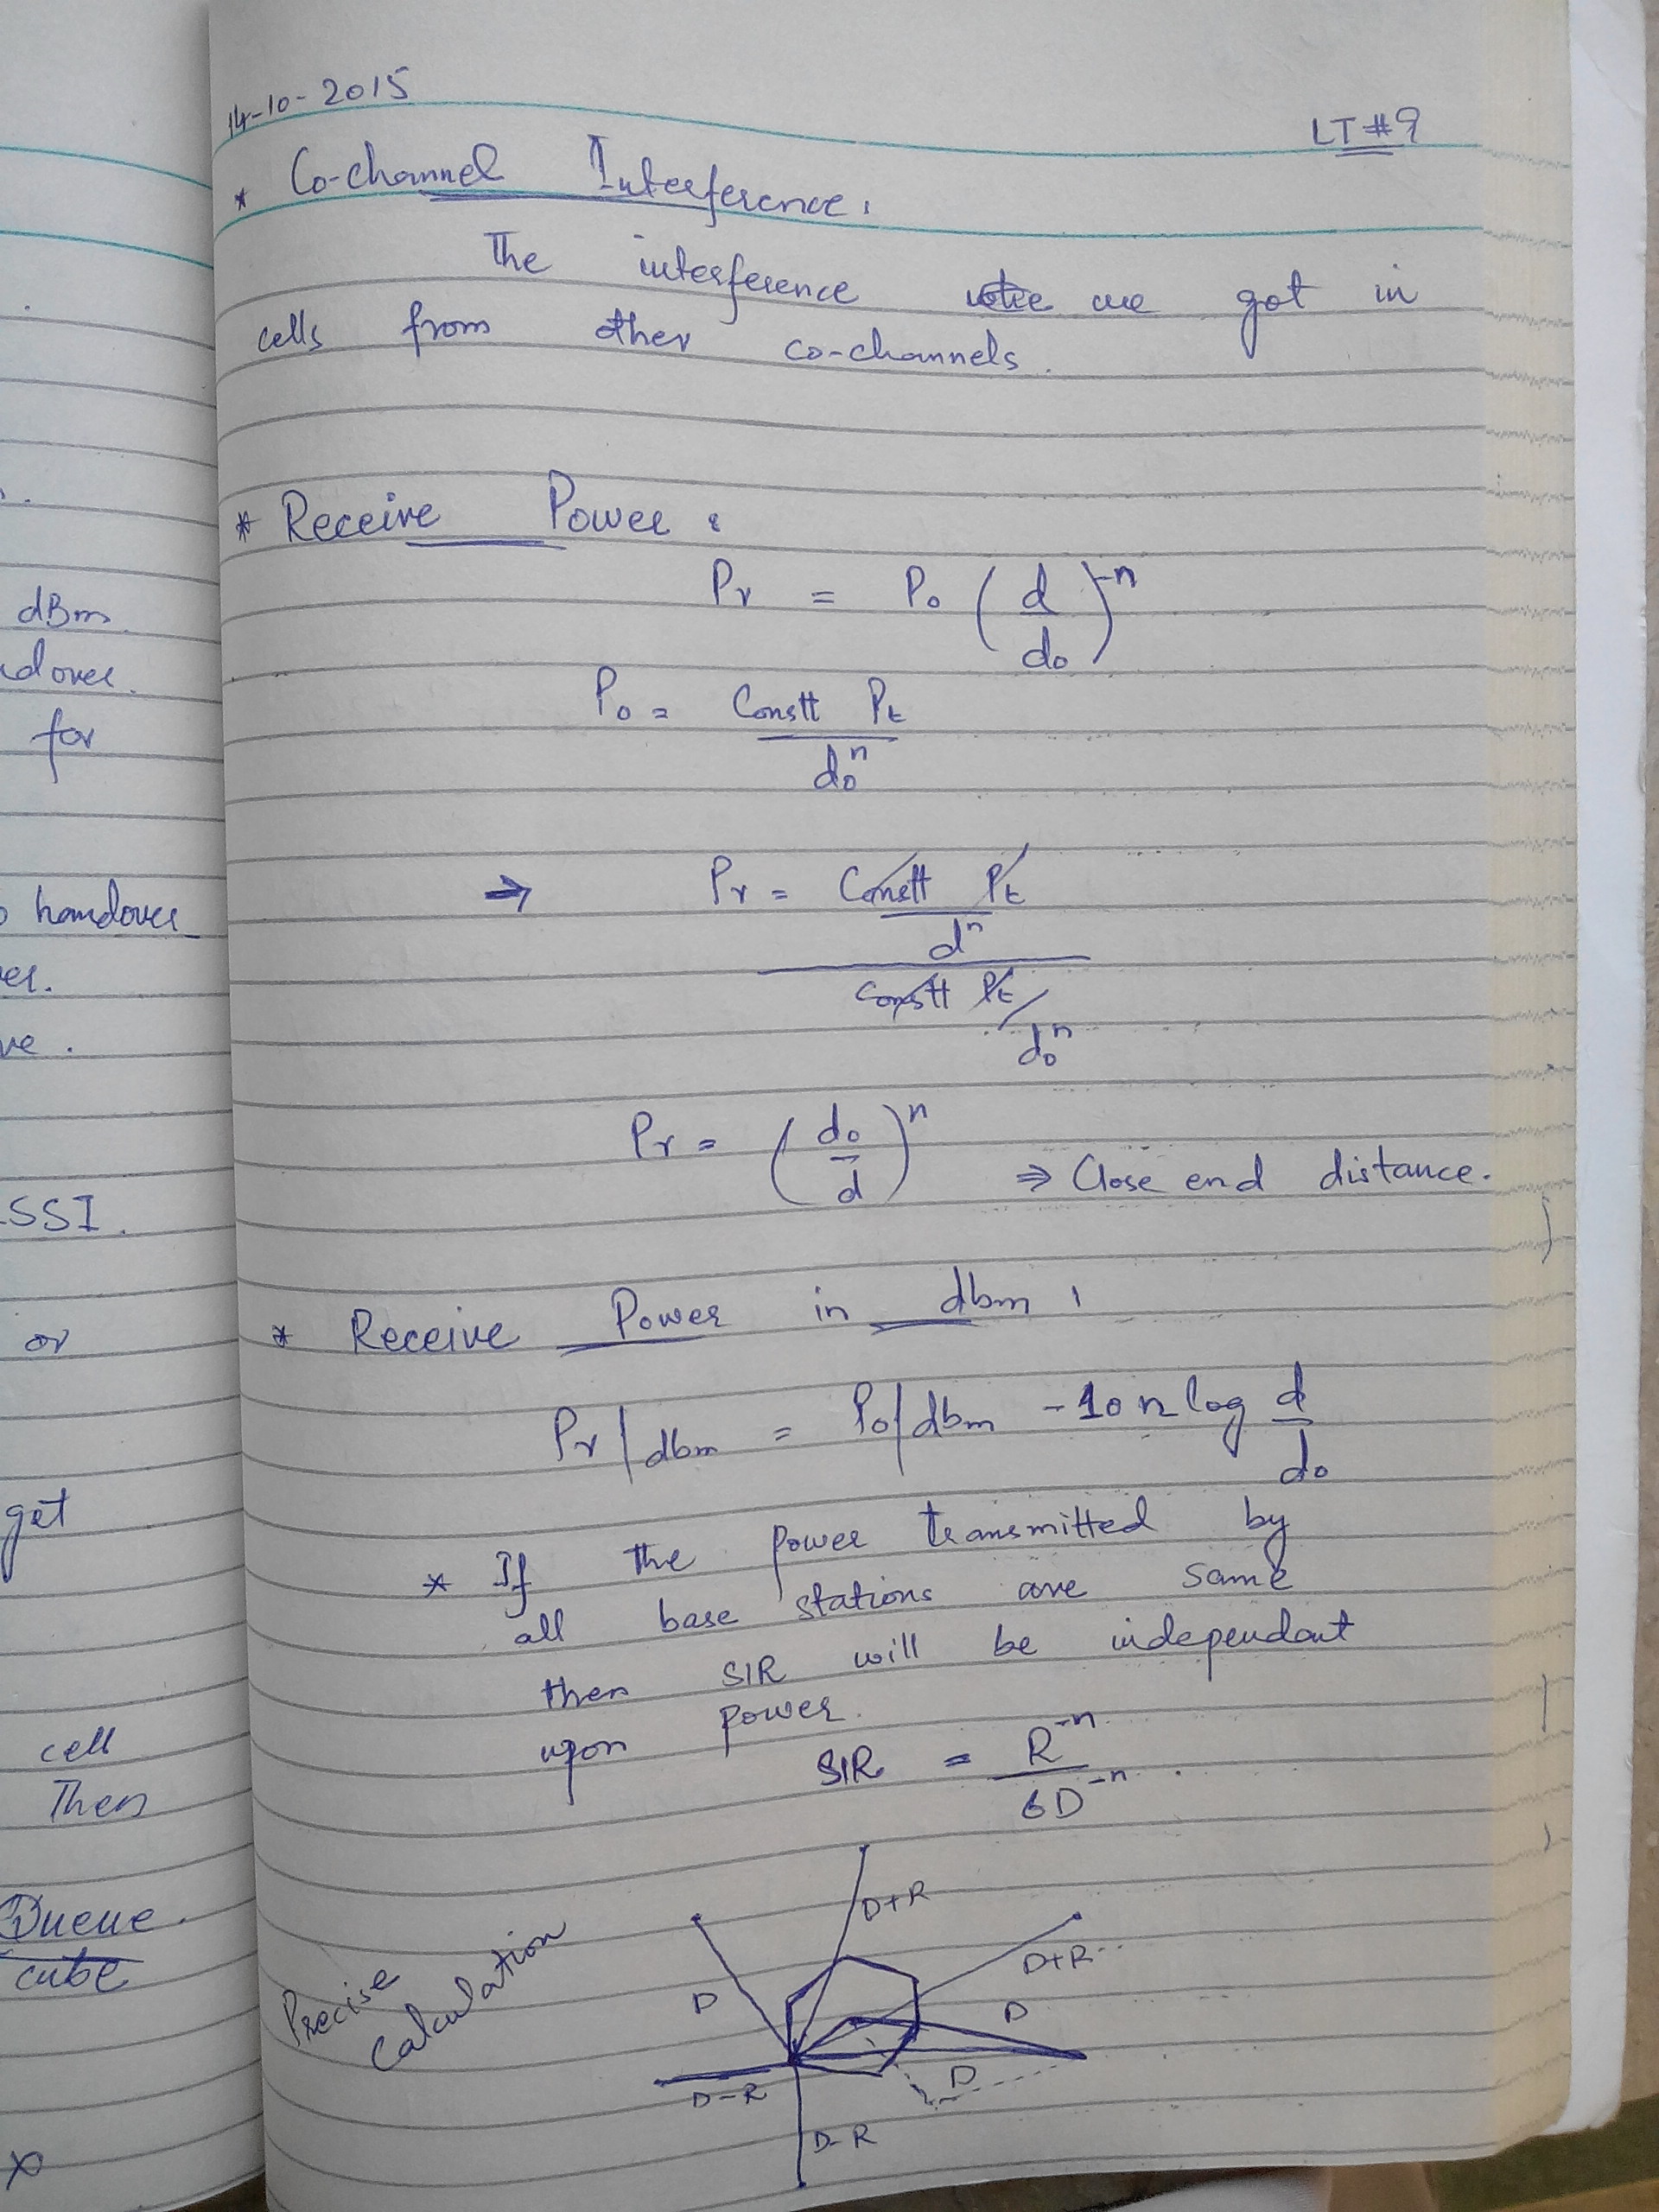 dBm
for
handover
SSI.
or
get
cell
Then
Queue.
cube
14-10-2015
LT#9
* Co-channel Interference:
The interference we got in
cells from other co-channels.
* Receive Power:
Pr = Po (d/do)^-n
Po = Constt Pt / do^n
⇒ Pr = Constt Pt / d^n
Constt Pt / do^n
Pr = (do/d)^n ⇒ Close end distance.
* Receive Power in dbm:
Pr|dbm = Po|dbm - 10 n log d/do
* If the power transmitted by
all base stations are same
then SIR will be independant
upon power.
SIR = R^-n / 6D^-n.
Precise
Calculation
D+R
D+R
D
D
D
D-R
D-R